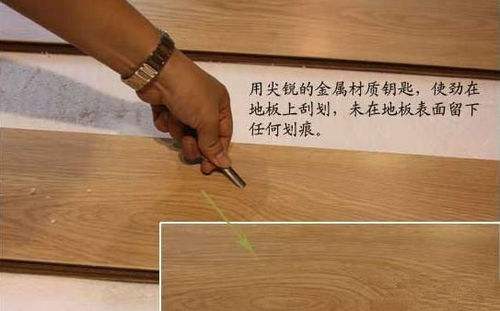 用尖锐的金属材质钥匙，使劲在
地板上刮划，未在地板表面留下
任何划痕。